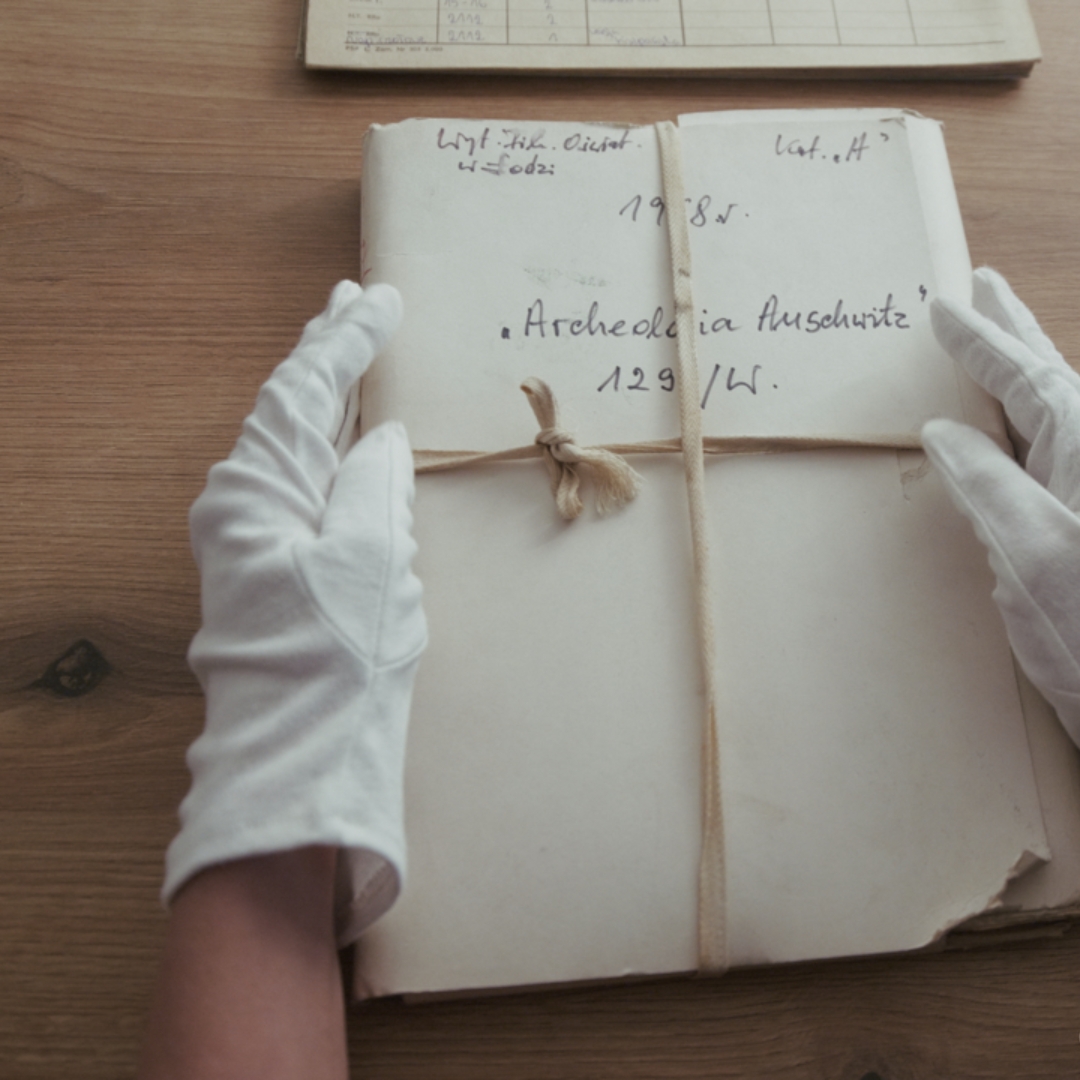 2112
2
2112
1
Wyt. Film. Oświat.
w Łodzi
Kat. „A"
19 8 r.
„Archeolo ia Auschwitz"
129 /W.